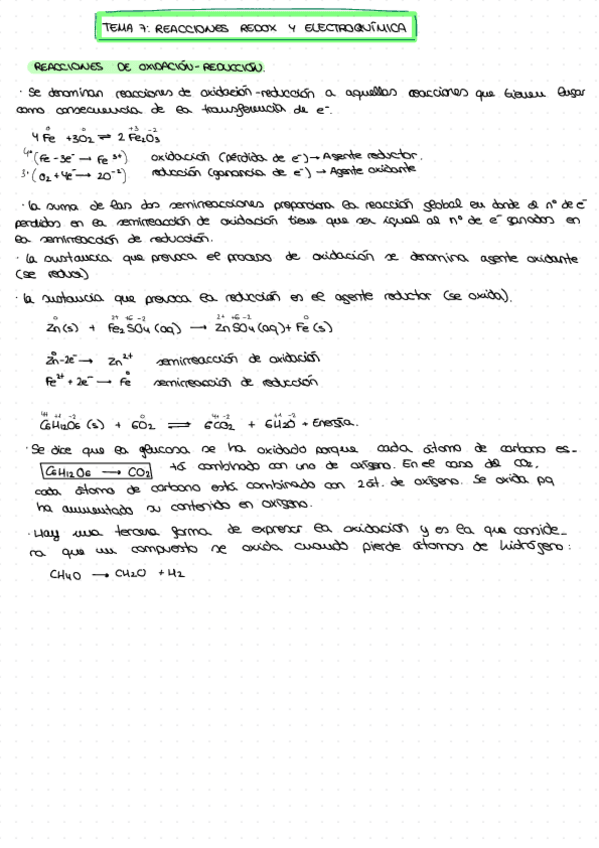 TEMA 7: REACCIONES REDOX Y ELECTROQUÍMICA
REACCIONES DE OXIDACIÓN-REDUCCIÓN.
· Se denominan reacciones de oxidación-reducción a aquellas reacciones que tienen lugar
como consecuencia de la transferencia de e⁻.
0 0 +3 -2
4Fe + 3O2 ⇌ 2Fe2O3
4* (Fe - 3e⁻ → Fe³⁺) oxidación (pérdida de e⁻) → Agente reductor.
3* (O2 + 4e⁻ → 2O⁻²) reducción (ganancia de e⁻) → Agente oxidante
· La suma de las dos semirreacciones proporciona la reacción global en donde el nº de e⁻
perdidos en la semirreacción de oxidación tiene que ser igual al nº de e⁻ ganados en
la semirreacción de reducción.
· La sustancia que provoca el proceso de oxidación se denomina agente oxidante
(se reduce)
· La sustancia que provoca la reducción es el agente reductor (se oxida).
0 2+ +6 -2 2+ +6 -2 0
Zn(s) + Fe2SO4(aq) → ZnSO4(aq) + Fe(s)
Zn⁰ - 2e⁻ → Zn²⁺ semirreacción de oxidación
Fe²⁺ + 2e⁻ → Fe⁰ semirreacción de reducción
4+ +1 -2 0 4+ -2 +1 -2
C6H12O6(s) + 6O2 ⇌ 6CO2 + 6H2O + Energía.
· Se dice que la glucosa se ha oxidado porque cada átomo de carbono es-
C6H12O6 → CO2 tá combinado con uno de oxígeno. En el caso del CO2,
cada átomo de carbono está combinado con 2 át. de oxígeno. Se oxida pq
ha aumentado su contenido en oxígeno.
· Hay una tercera forma de expresar la oxidación y es la que conside-
ra que un compuesto se oxida cuando pierde átomos de hidrógeno:
CH4O → CH2O + H2